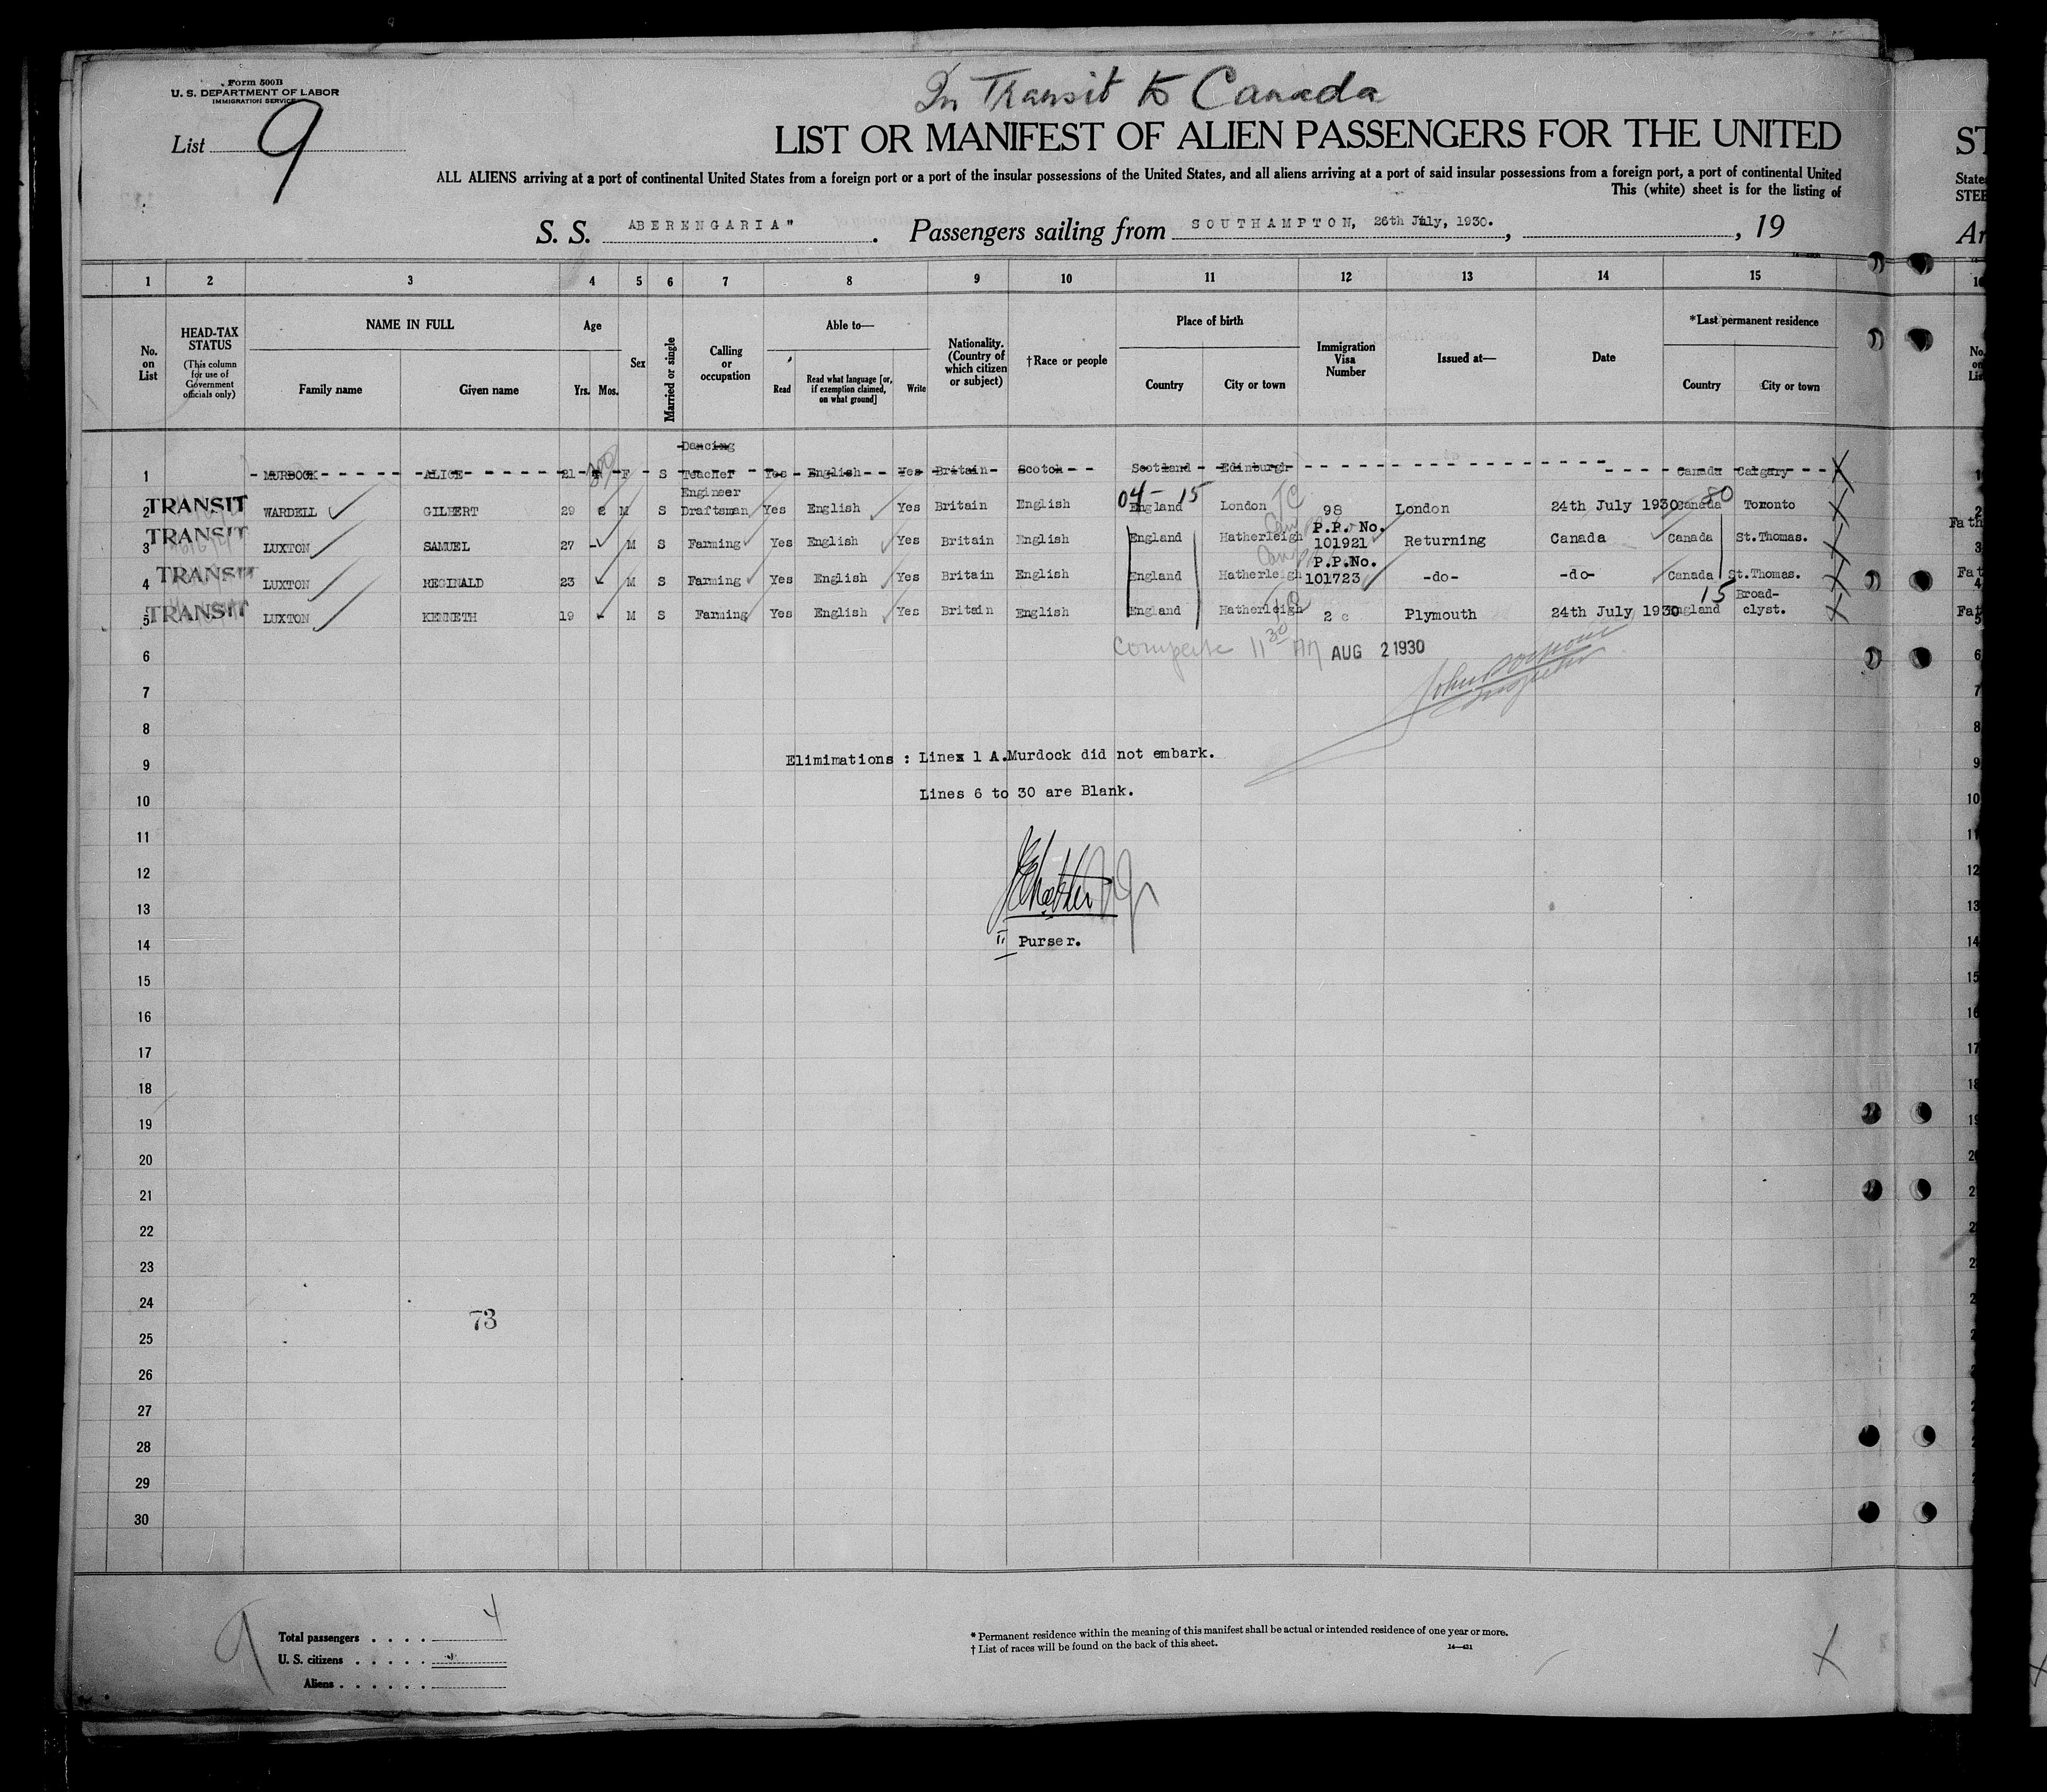 In Transit to Canada
Form 500B
U. S. DEPARTMENT OF LABOR
IMMIGRATION SERVICE
List 9
LIST OR MANIFEST OF ALIEN PASSENGERS FOR THE UNITED
ST
ALL ALIENS arriving at a port of continental United States from a foreign port or a port of the insular possessions of the United States, and all aliens arriving at a port of said insular possessions from a foreign port, a port of continental United
States
This (white) sheet is for the listing of
STEE
S. S. ABERENGARIA". Passengers sailing from SOUTHAMPTON, 26th July, 1930. , , 19
Ar
1 2 3 4 5 6 7 8 9 10 11 12 13 14 15
No. on List
HEAD-TAX STATUS
(This column for use of Government officials only)
NAME IN FULL
Family name Given name
Age
Yrs. Mos.
Sex
Married or single
Calling or occupation
Able to—
Read
Read what language [or, if exemption claimed, on what ground]
Write
Nationality. (Country of which citizen or subject)
†Race or people
Place of birth
Country City or town
Immigration Visa Number
Issued at—
Date
*Last permanent residence
Country City or town
No. on List
Dancing
1 MURDOCK ALICE 21 F S Teacher Yes English Yes Britain Scotch Scotland Edinburgh Canada Calgary X
Engineer
04- 15 80
TRANSIT 2 WARDELL GILBERT 29 M S Draftsman Yes English Yes Britain English England London 98 London 24th July 1930 Canada Toronto X
P.P. No.
Fath
TRANSIT 3 LUXTON SAMUEL 27 - M S Farming Yes English Yes Britain English England Hatherleigh 101921 Returning Canada Canada St.Thomas. X
P.P.No.
Fat
TRANSIT 4 LUXTON REGINALD 23 M S Farming Yes English Yes Britain English England Hatherleigh 101723 -do- -do- Canada St.Thomas. X
15 Broad-
Fat
TRANSIT 5 LUXTON KENNETH 19 M S Farming Yes English Yes Britain English England Hatherleigh 2 c Plymouth 24th July 1930 England clyst. X
6 11 30 AM AUG 2 1930
7
8
9 Elimimations : Linex 1 A.Murdock did not embark.
10 Lines 6 to 30 are Blank.
11
12
13
14 Purser.
15
16
17
18
19
20
21
22
23
24
73
25
26
27
28
29
30
9
Total passengers . . . . 4
U. S. citizens . . . . .
Aliens . . . . . .
* Permanent residence within the meaning of this manifest shall be actual or intended residence of one year or more.
† List of races will be found on the back of this sheet.
14—431
X